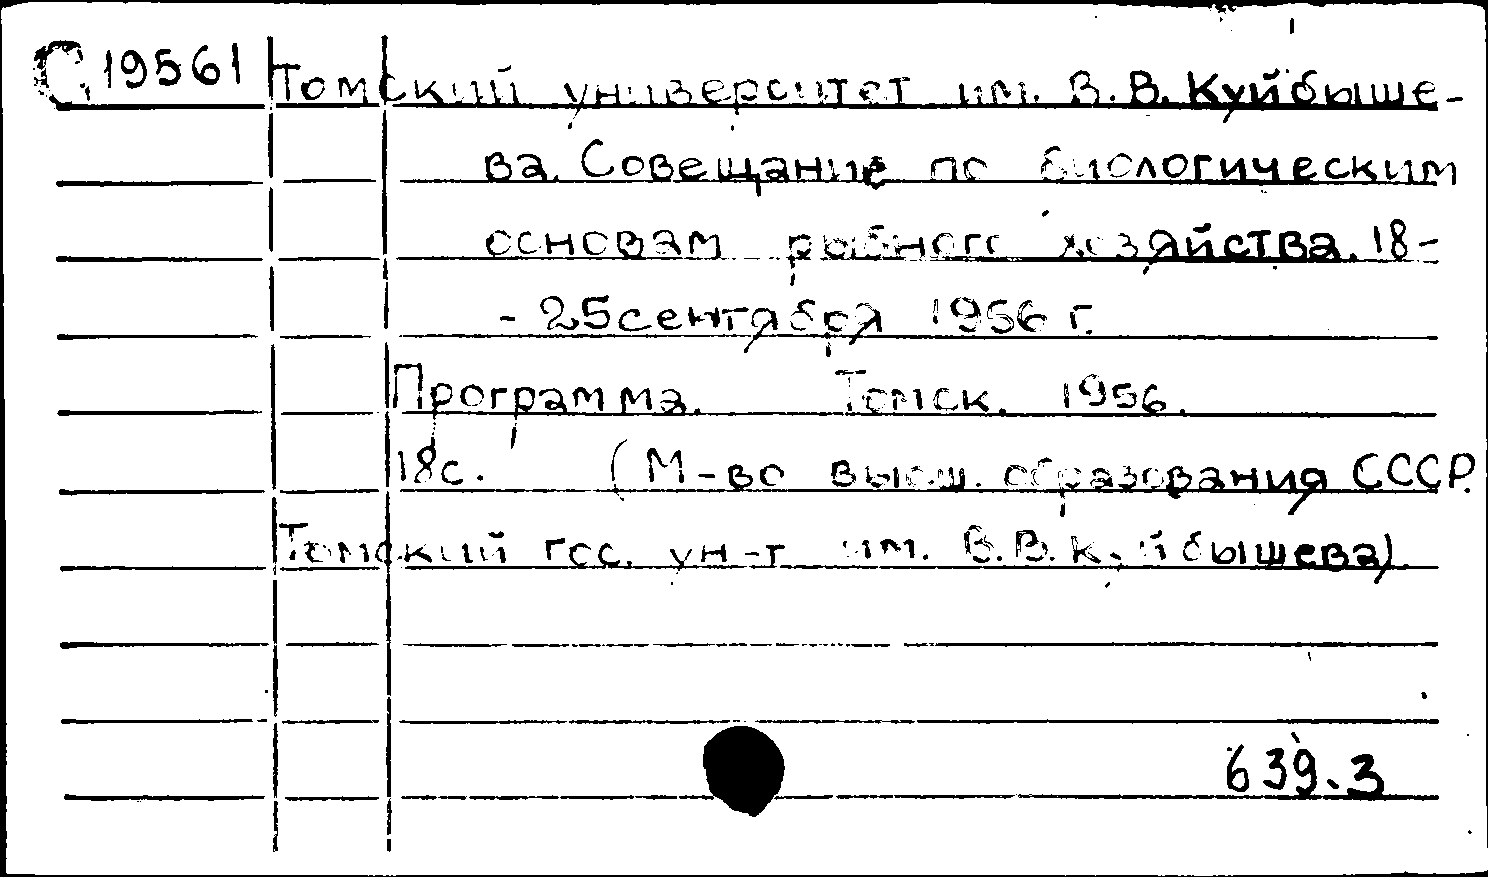 С 19561 Томский университет им. В.В. Куйбыше-
ва. Совещание по биологическим
основам рыбного хозяйства. 18-
- 25 сентября 1956 г.
Программа. Томск. 1956.
18с. (М-во высш. образования СССР.
Томский гос. ун-т им. В.В. Куйбышева).
639.3